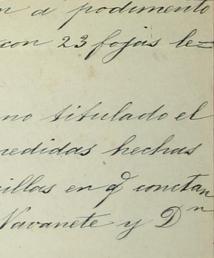 n a pedimento
con 23 fojas le=
no titulado el
medidas hechas
illas en q constan
Navanete y Dn